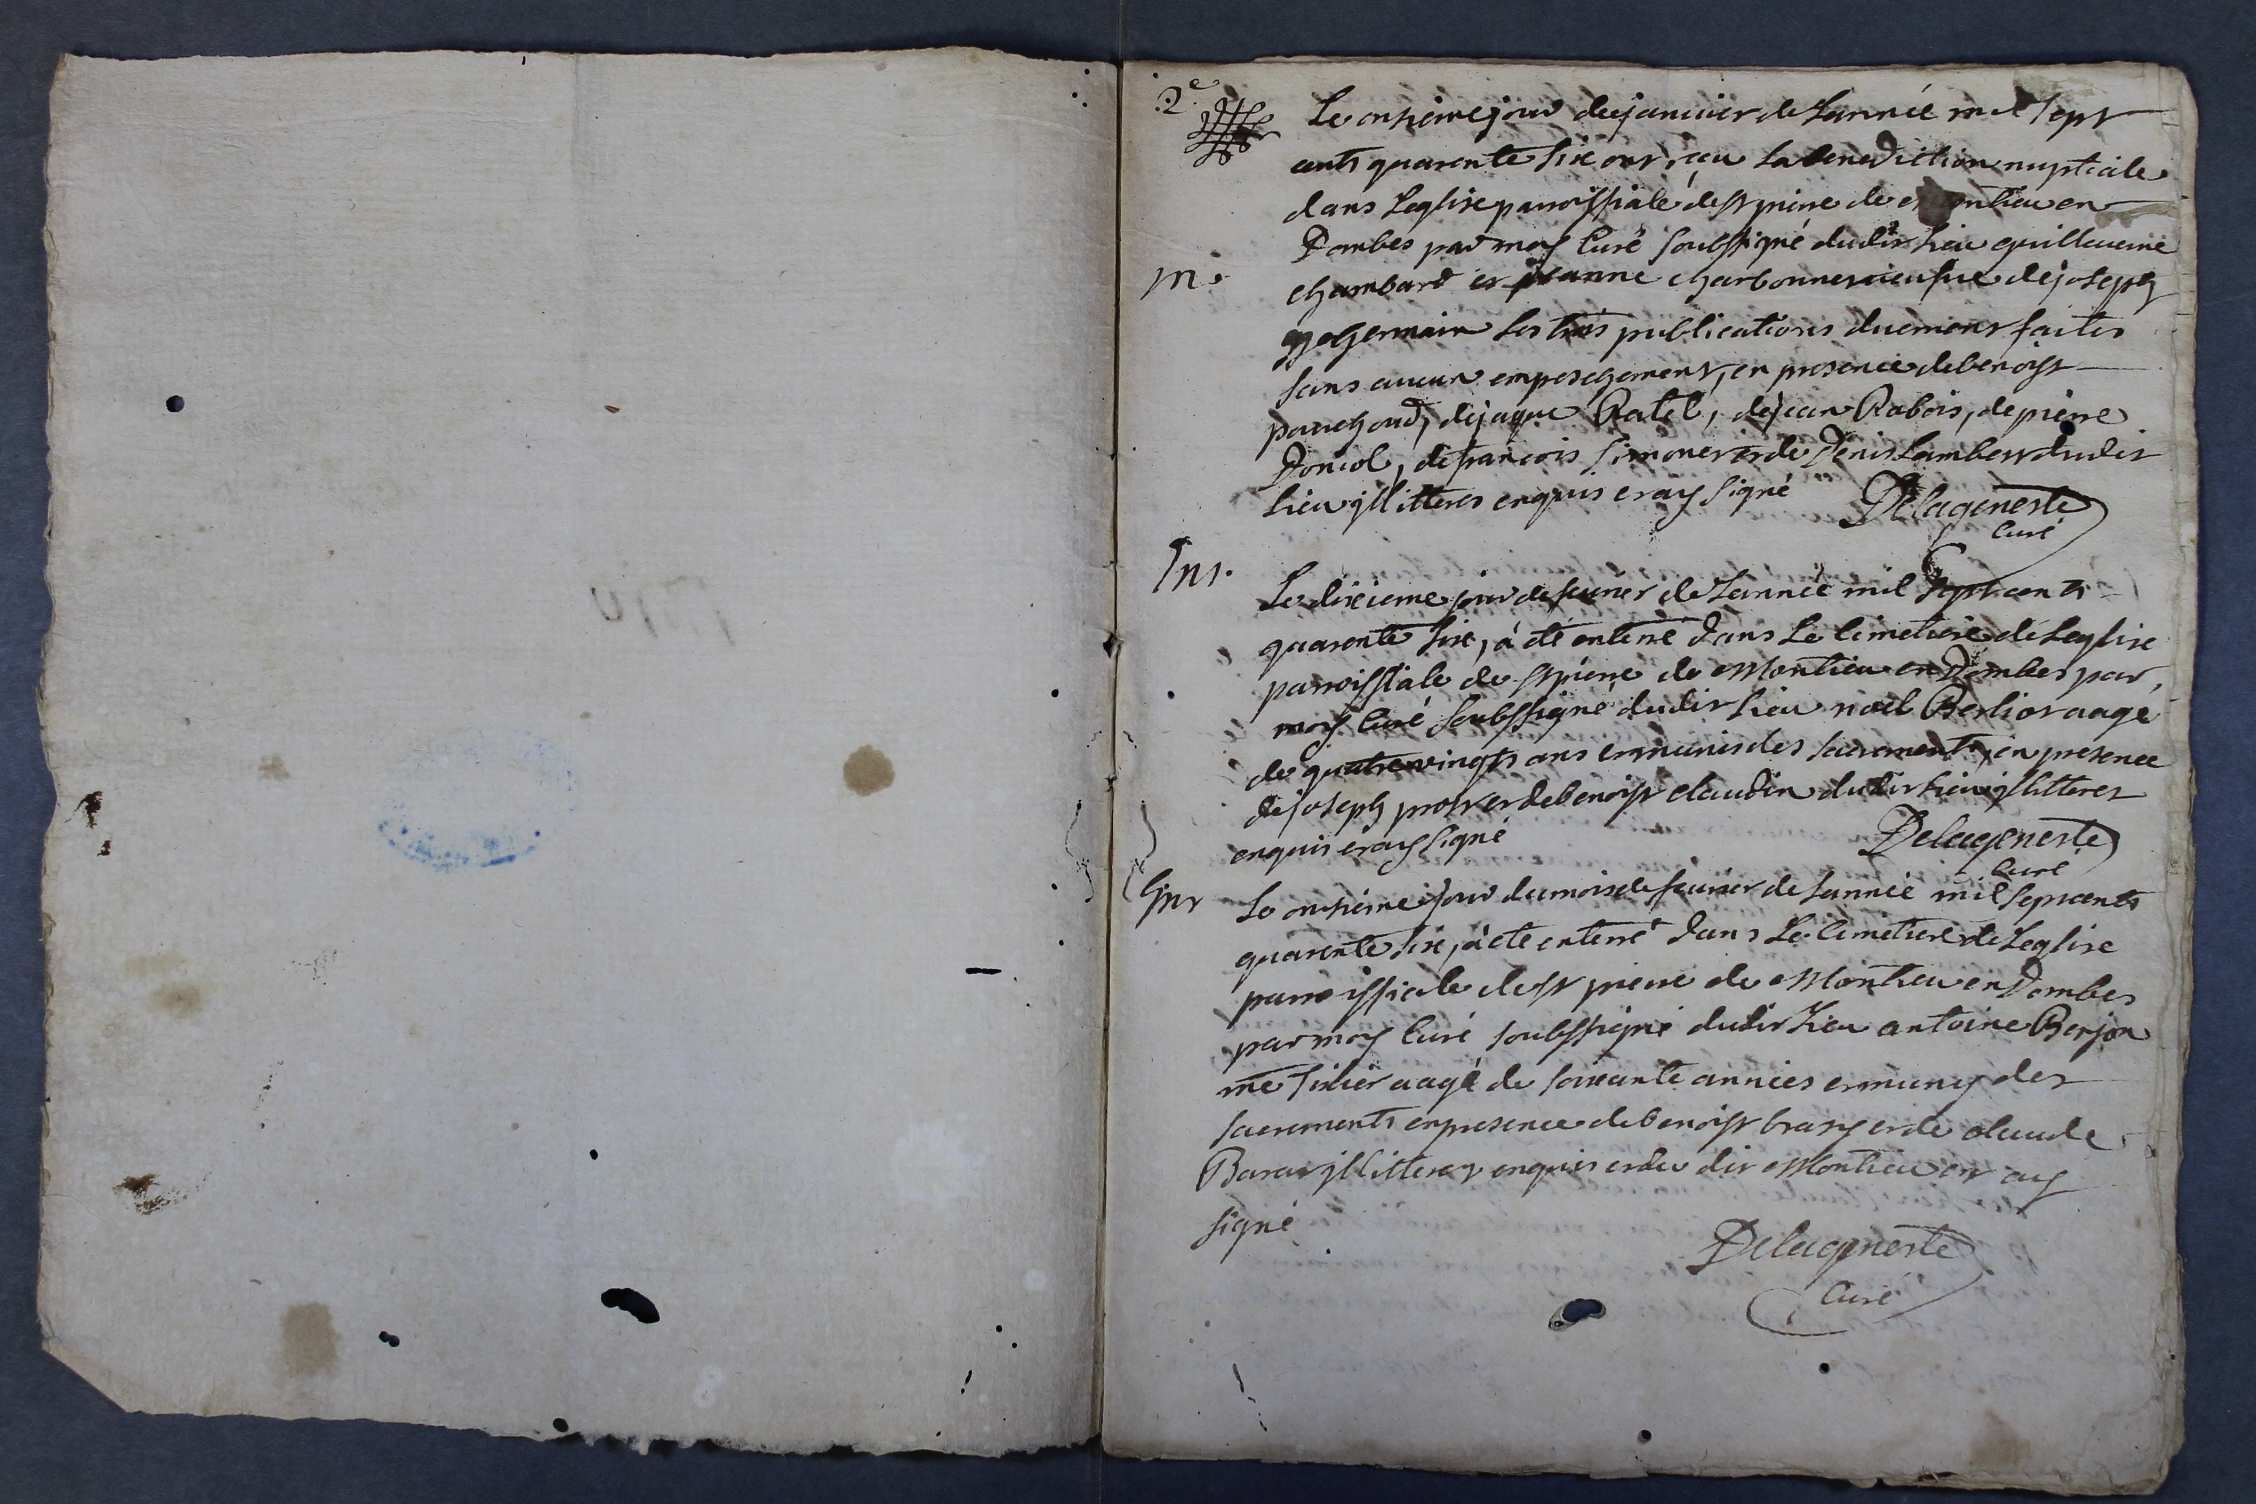 2e
Le onzieme jour de janvier de Lannée mil sept
cents quarente six ont reçu La benediction nuptiale
dans Leglise parroissiale de st pierre de montieu en
Dombes par moy Curé soubssigné dudit Lieu guillaume
m.
chambard et jeanne charbonner vieufve de joseph
germain Les trois publications duement faites
sans aucun empeschement, en presence de benoist
pauchoud, de jaque Ratel, de jean Rabois, de pierre
Doncol, de francois simonet et de Denis Lambert dudit
Lieu jllitteres enquis et ay signé Delageneste
Curé
Int.
Le dixieme jour de fevrier de Lannée mil sept cents
quarente six, à été enterré dans Le Cimetiere de Leglise
parroissiale de st pierre de Montieu en Dombes par
moy Curé soubssigné dudit Lieu noel Berliot aagé
de quatre vingts ans et munis des sacrements, en presence
de joseph prost et de benoist claudin dudit Lieu jllitteres
enquis et ay signé Delageneste
Curé
Int
Le onzieme jour du mois de fevrier de Lannée mil sept cents
quarente six, à été enterré dans Le Cimetiere de Leglise
parroissiale de st pierre de Montieu en Dombes
par moy Curé soubssigné dudit Lieu antoine Berjon
me aagé de soixante années et muny des
sacrements en presence de benoist brasy et de claude
Barat jllitteres enquis et du dit Montieu et ay
signé
Delageneste
Curé